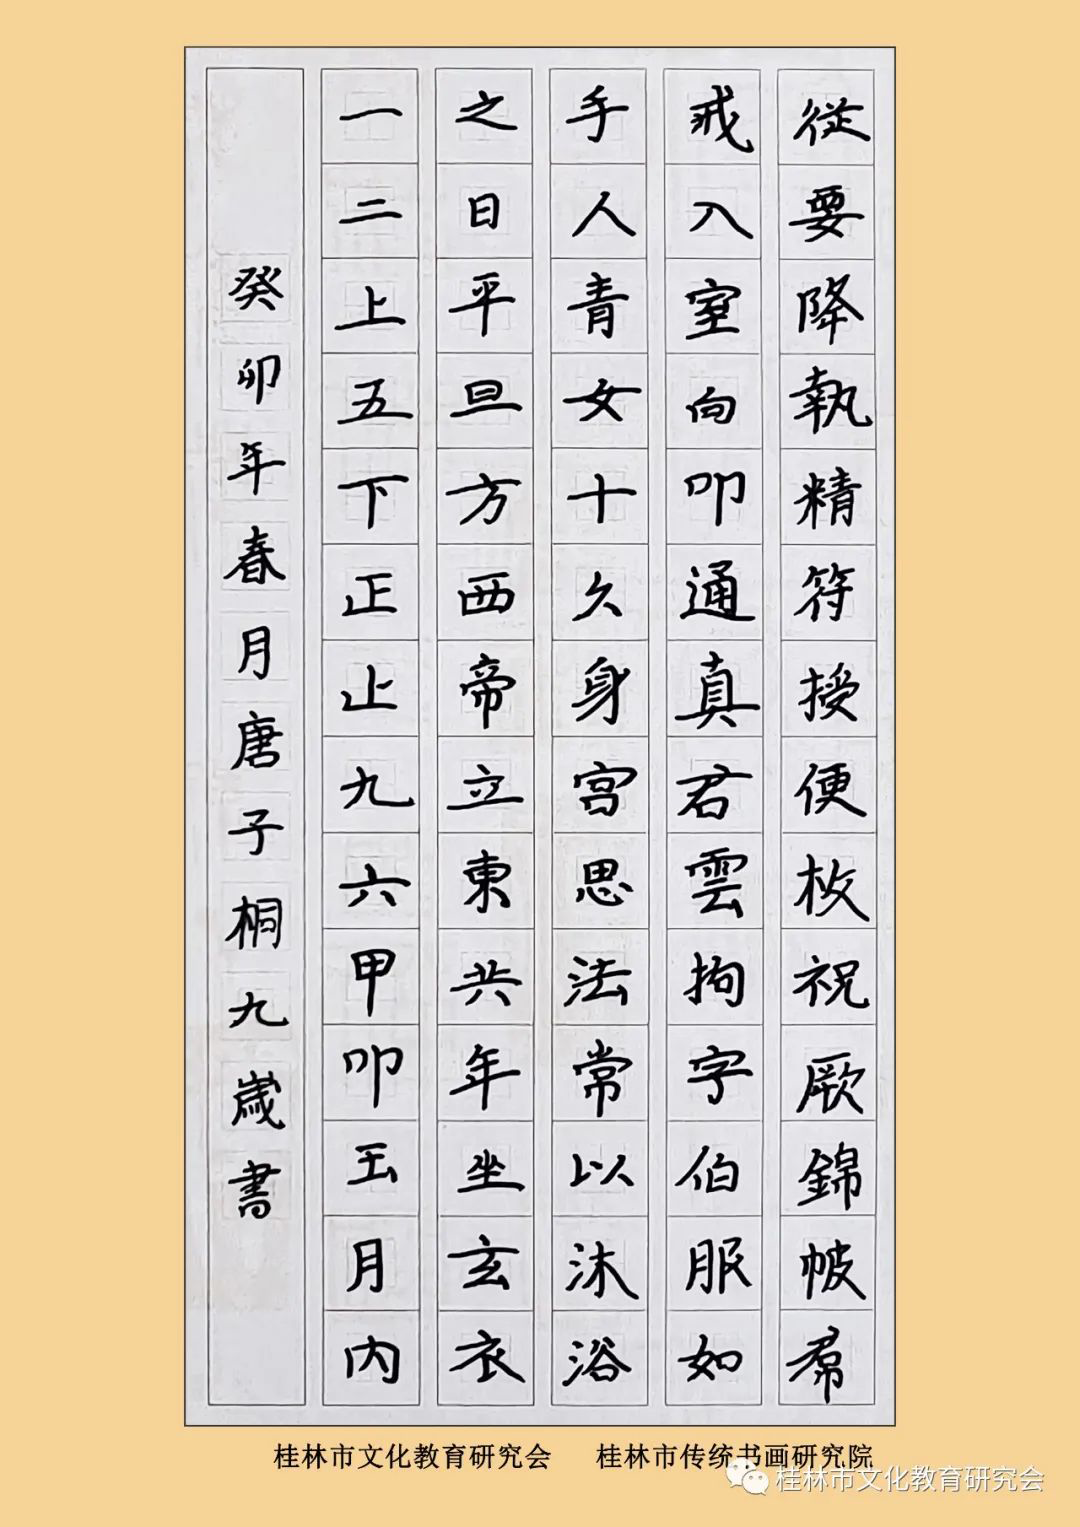 從要降執精符授便枚祝厥錦帔帬
戒入室向叩通真君雲拘字伯服如
手人青女十久身宫思法常以沐浴
之日平旦方西帝立東共年坐玄衣
一二上五下正止九六甲叩玉月内
癸卯年春月唐子桐九歲書
桂林市文化教育研究会 桂林市传统书画研究院
桂林市文化教育研究会